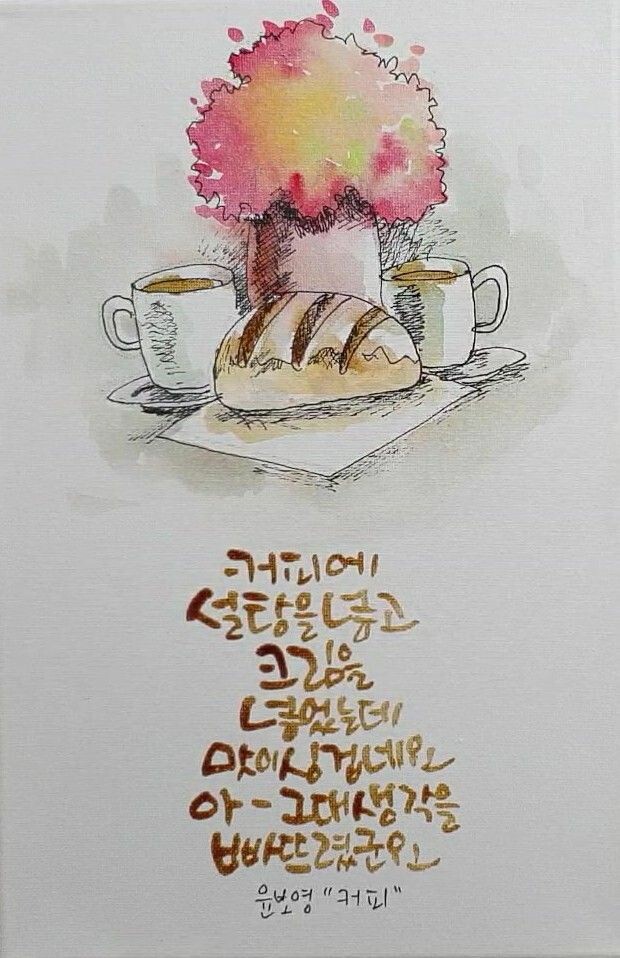 커피에
설탕을 넣고
크림을
넣었는데
맛이 싱겁네요
아 - 그대 생각을
빠뜨렸군요
윤보영 "커피"